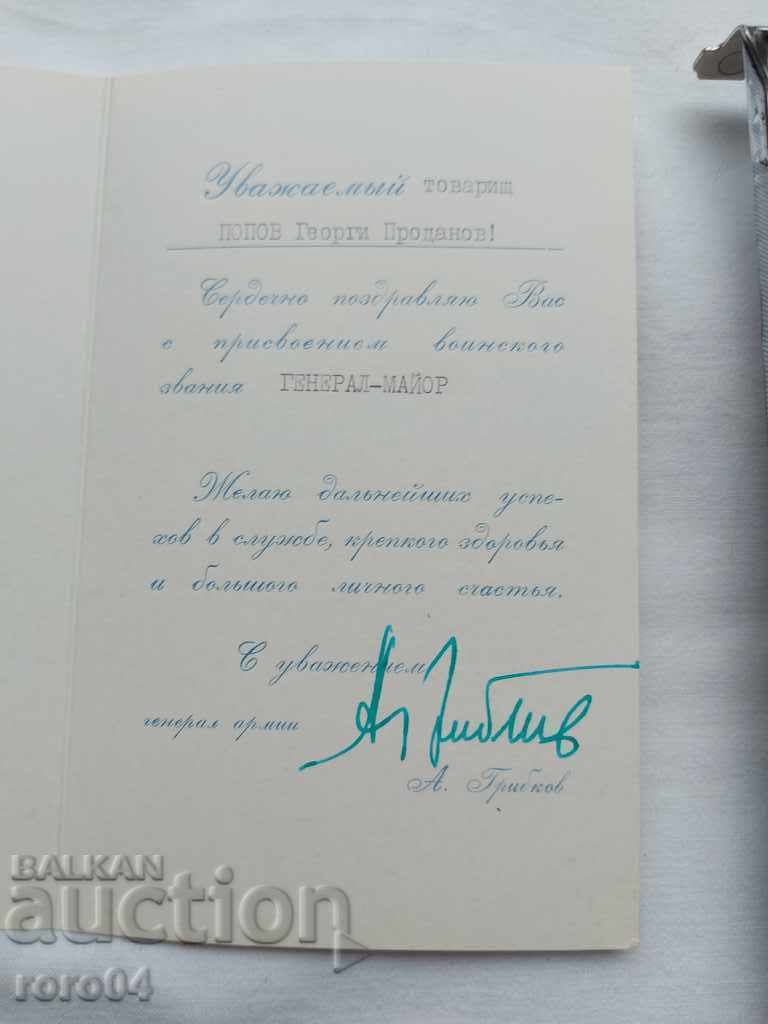 Уважаемый товарищ
ПОПОВ Георги Проданов!
Сердечно поздравляю Вас
с присвоением воинского
звания ГЕНЕРАЛ-МАЙОР
Желаю дальнейших успе-
хов в службе, крепкого здоровья
и большого личного счастья.
С уважением
генерал армии
А. Грибков
А. Грибков
BALKAN
auction
roro04